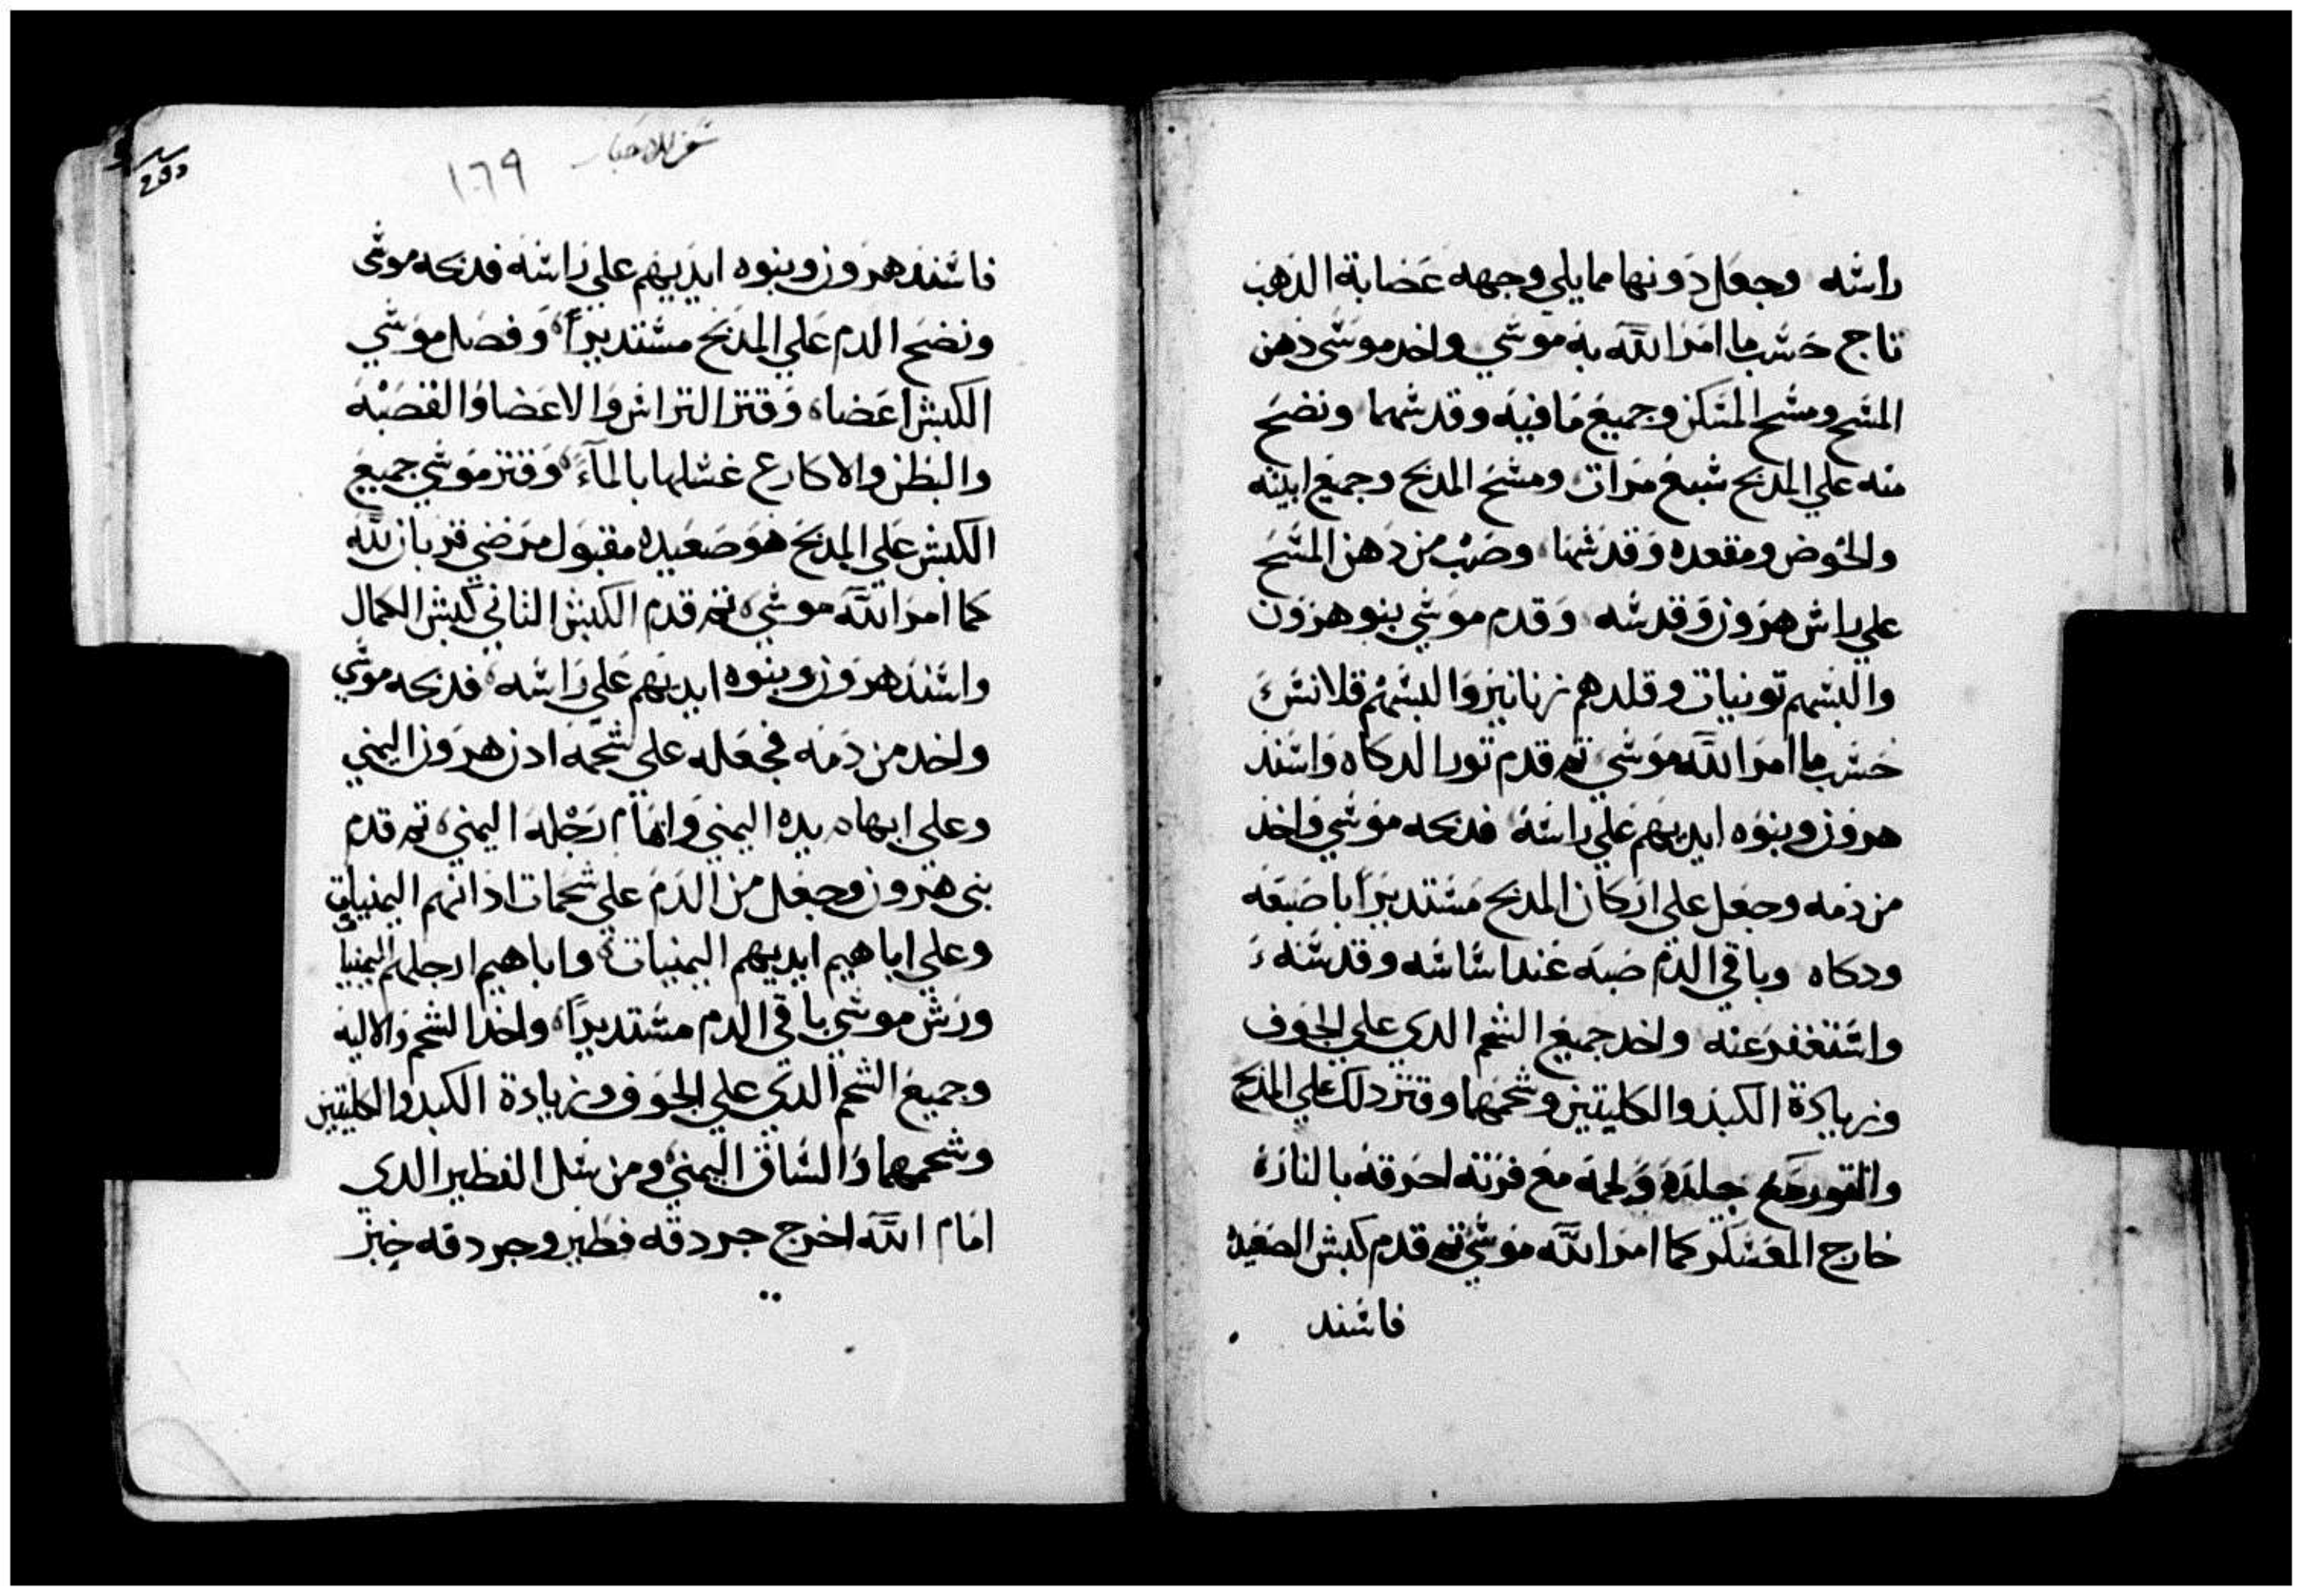 راسه وجعل دونها مما يلي وجهه عصابة الذهب
تاج حسب ما امر الله به موسي واخد موسى دهن
المسح ومسح المسكن وجميع ما فيه وقدسهما ونضح
منه علي المدبح سبع مرات ومسح المدبح وجميع ابيته
والحوض ومقعده وقدسها وصب من دهن المسح
علي راس هرون وقدسه وقدم موسي بنو هرون
والبسهم تونيات وقلدهم زنانير والبسهم قلانس
حسب ما امر الله موسي تم قدم تور الدكاه واسند
هرون وبنوه ايديهم علي راسه فدبحه موسي واخد
من دمه وجعل علي اركان المدبح مستديرا باصبعه
ودكاه وباقي الدم صبه عند اساسه وقدسه
واستغفر عنه واخد جميع الشحم الدي علي الجوف
وزيادة الكبد والكليتين وشحمهما وقتر دلك علي المدبح
والتور مع جلده ولحمه مع فرته احرقه بالنار
خارج المعسكر كما امر الله موسي تم قدم كبش الصعيده
فاسند
سفر الاحبار
١٦٩
فاسند هرون وبنوه ايديهم علي راسه فدبحه موسى
ونضح الدم علي المدبح مستديراً وفصل موسي
الكبش اعضاه وقتر الراس والاعضا والقصبه
والبطن والاكارع غسلها بالمآء وقتر موسي جميع
الكبش علي المدبح هو صعيده مقبول مرضي قربان لله
كما امر الله موسي تم قدم الكبش التاني كبش الكمال
واسند هرون وبنوه ايديهم علي راسه فدبحه موسي
واخد من دمه فجعله علي شحمه ادن هرون اليمني
وعلي ابهام يده اليمني وابهام رجله اليمني تم قدم
بني هرون وجعل من الدم علي شحمات ادانهم اليمنيات
وعلي اباهيم ايديهم اليمنيات واباهيم ارجلهم اليمنيا
ورش موسي باقي الدم مستديراً واخد الشحم والاليه
وجميع الشحم الدي علي الجوف وزيادة الكبد والكليتين
وشحمهما والساق اليمني ومن سل الفطير الدي
امام الله اخرج جردقه فطير وجردقه خبز